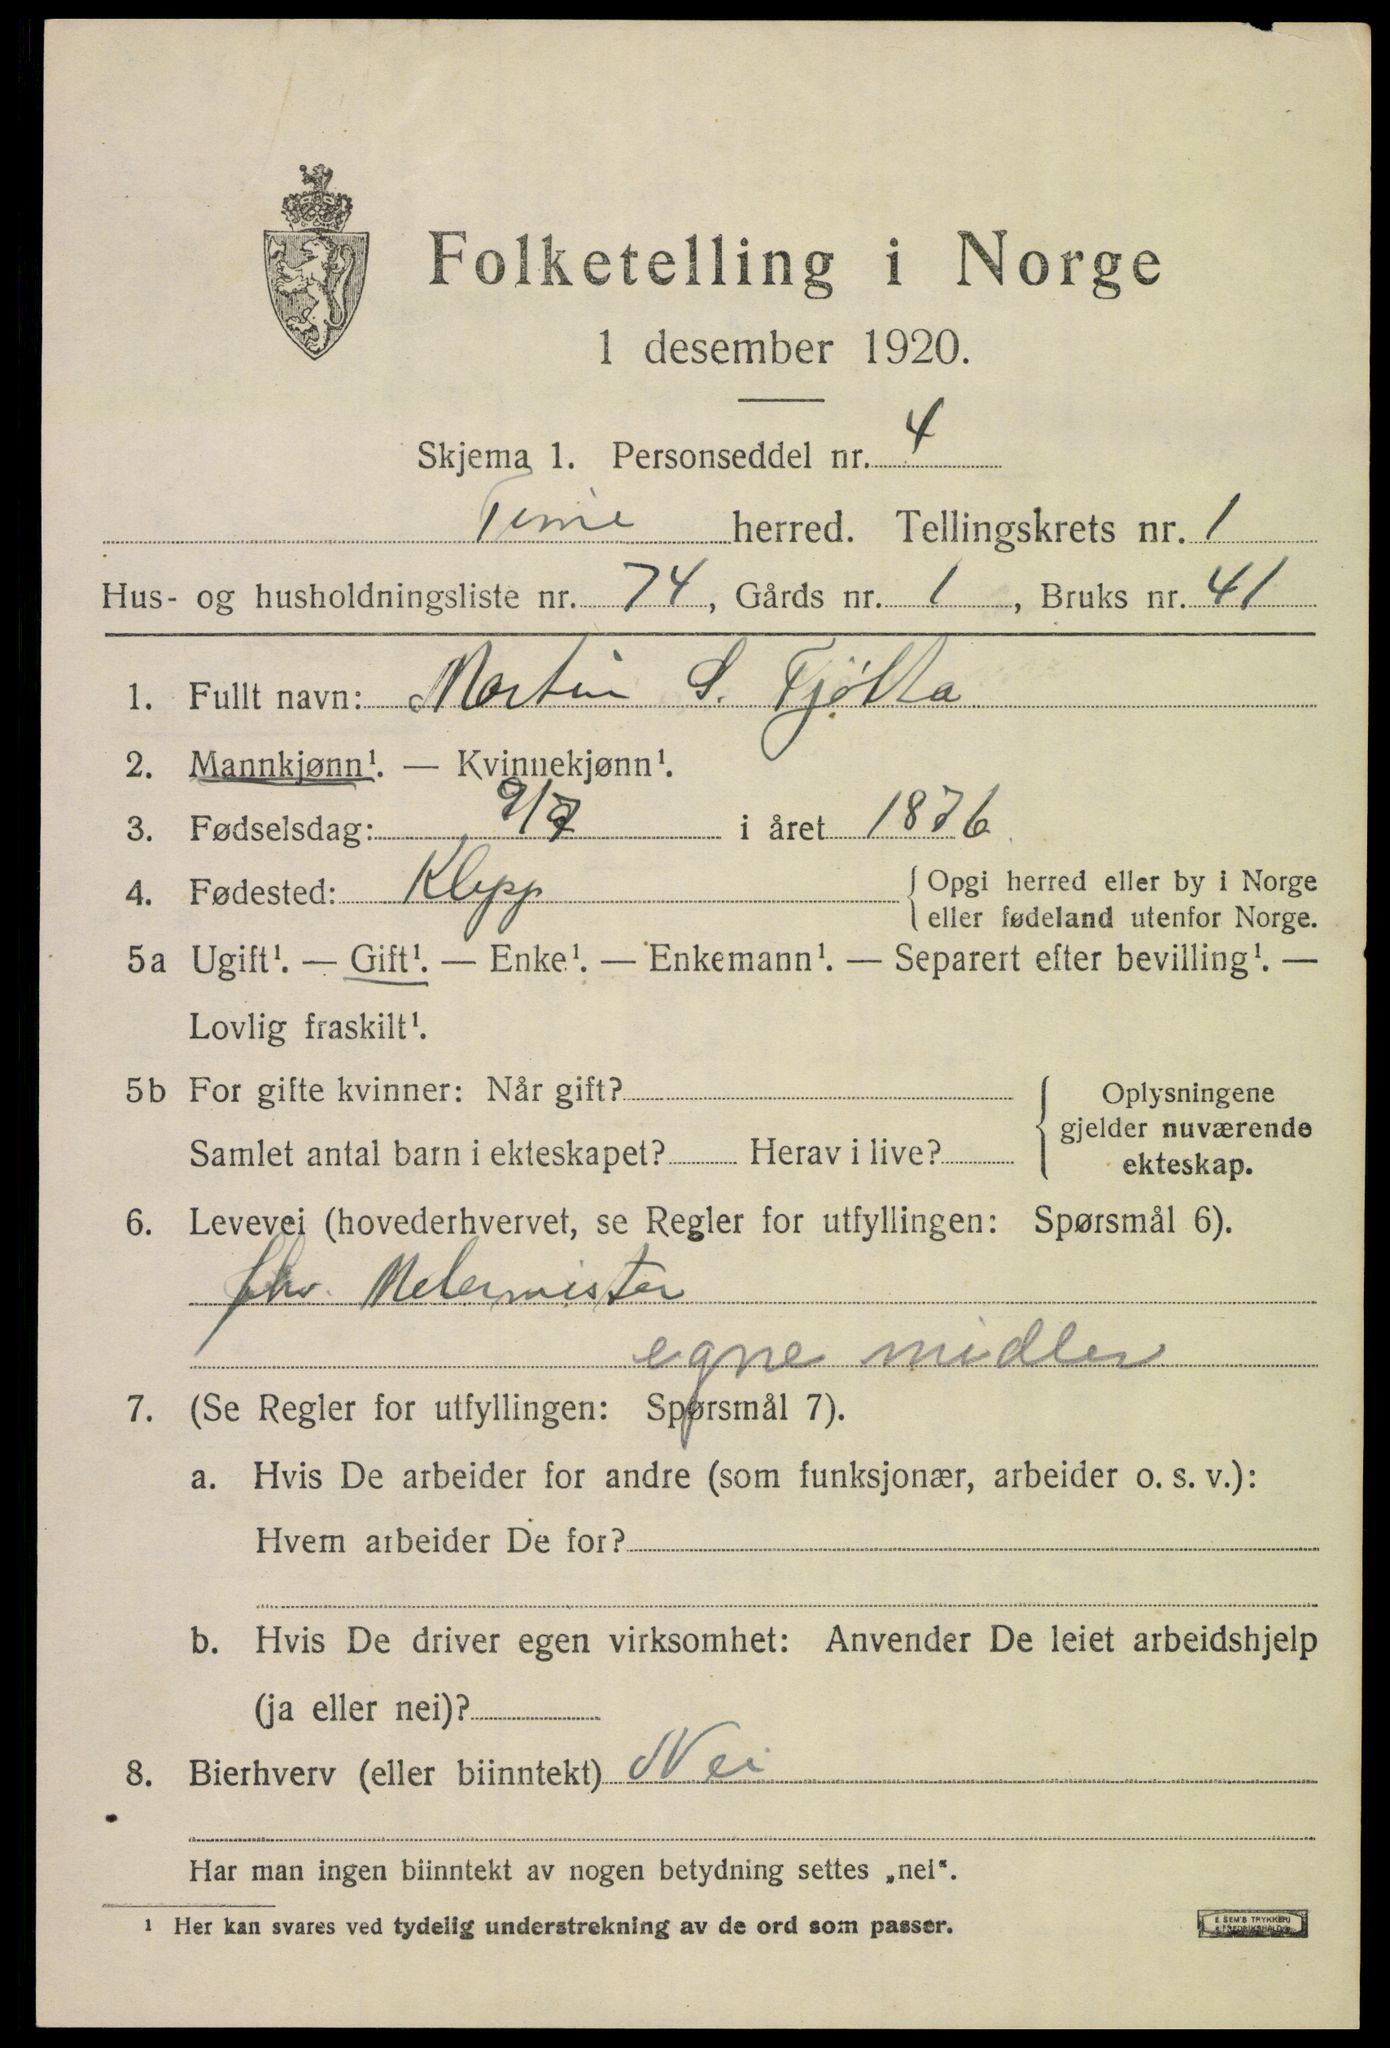 Folketelling i Norge
1 desember 1920.
Skjema 1. Personseddel nr. 4
Time herred. Tellingskrets nr. 1
Hus- og husholdningsliste nr. 74, Gårds nr. 1, Bruks nr. 41
1. Fullt navn: Martin S. Tjøtta
2. Mannkjønn¹. — Kvinnekjønn¹.
3. Fødselsdag: 9/7 i året 1876
4. Fødested: Klepp { Opgi herred eller by i Norge
eller fødeland utenfor Norge.
5a Ugift¹. — Gift¹. — Enke¹. — Enkemann¹. — Separert efter bevilling¹. —
Lovlig fraskilt¹.
5b For gifte kvinner: Når gift?
Samlet antal barn i ekteskapet? Herav i live?
{ Oplysningene
gjelder nuværende
ekteskap.
6. Levevei (hovederhvervet, se Regler for utfyllingen: Spørsmål 6).
fhv.
egne midler
7. (Se Regler for utfyllingen: Spørsmål 7).
a. Hvis De arbeider for andre (som funksjonær, arbeider o. s. v.):
Hvem arbeider De for?
b. Hvis De driver egen virksomhet: Anvender De leiet arbeidshjelp
(ja eller nei)?
8. Bierhverv (eller biinntekt) Nei
Har man ingen biinntekt av nogen betydning settes „nei“.
¹ Her kan svares ved tydelig understrekning av de ord som passer.
E SEM'S TRYKKERI
FREDRIKSHALD